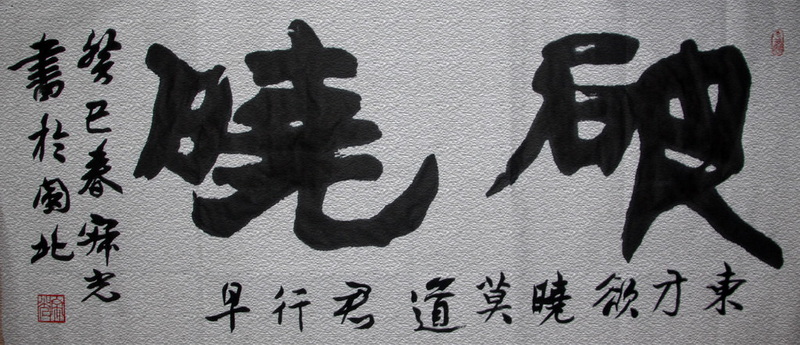 破曉
東方欲曉莫道君行早
癸巳春光
書於閩北